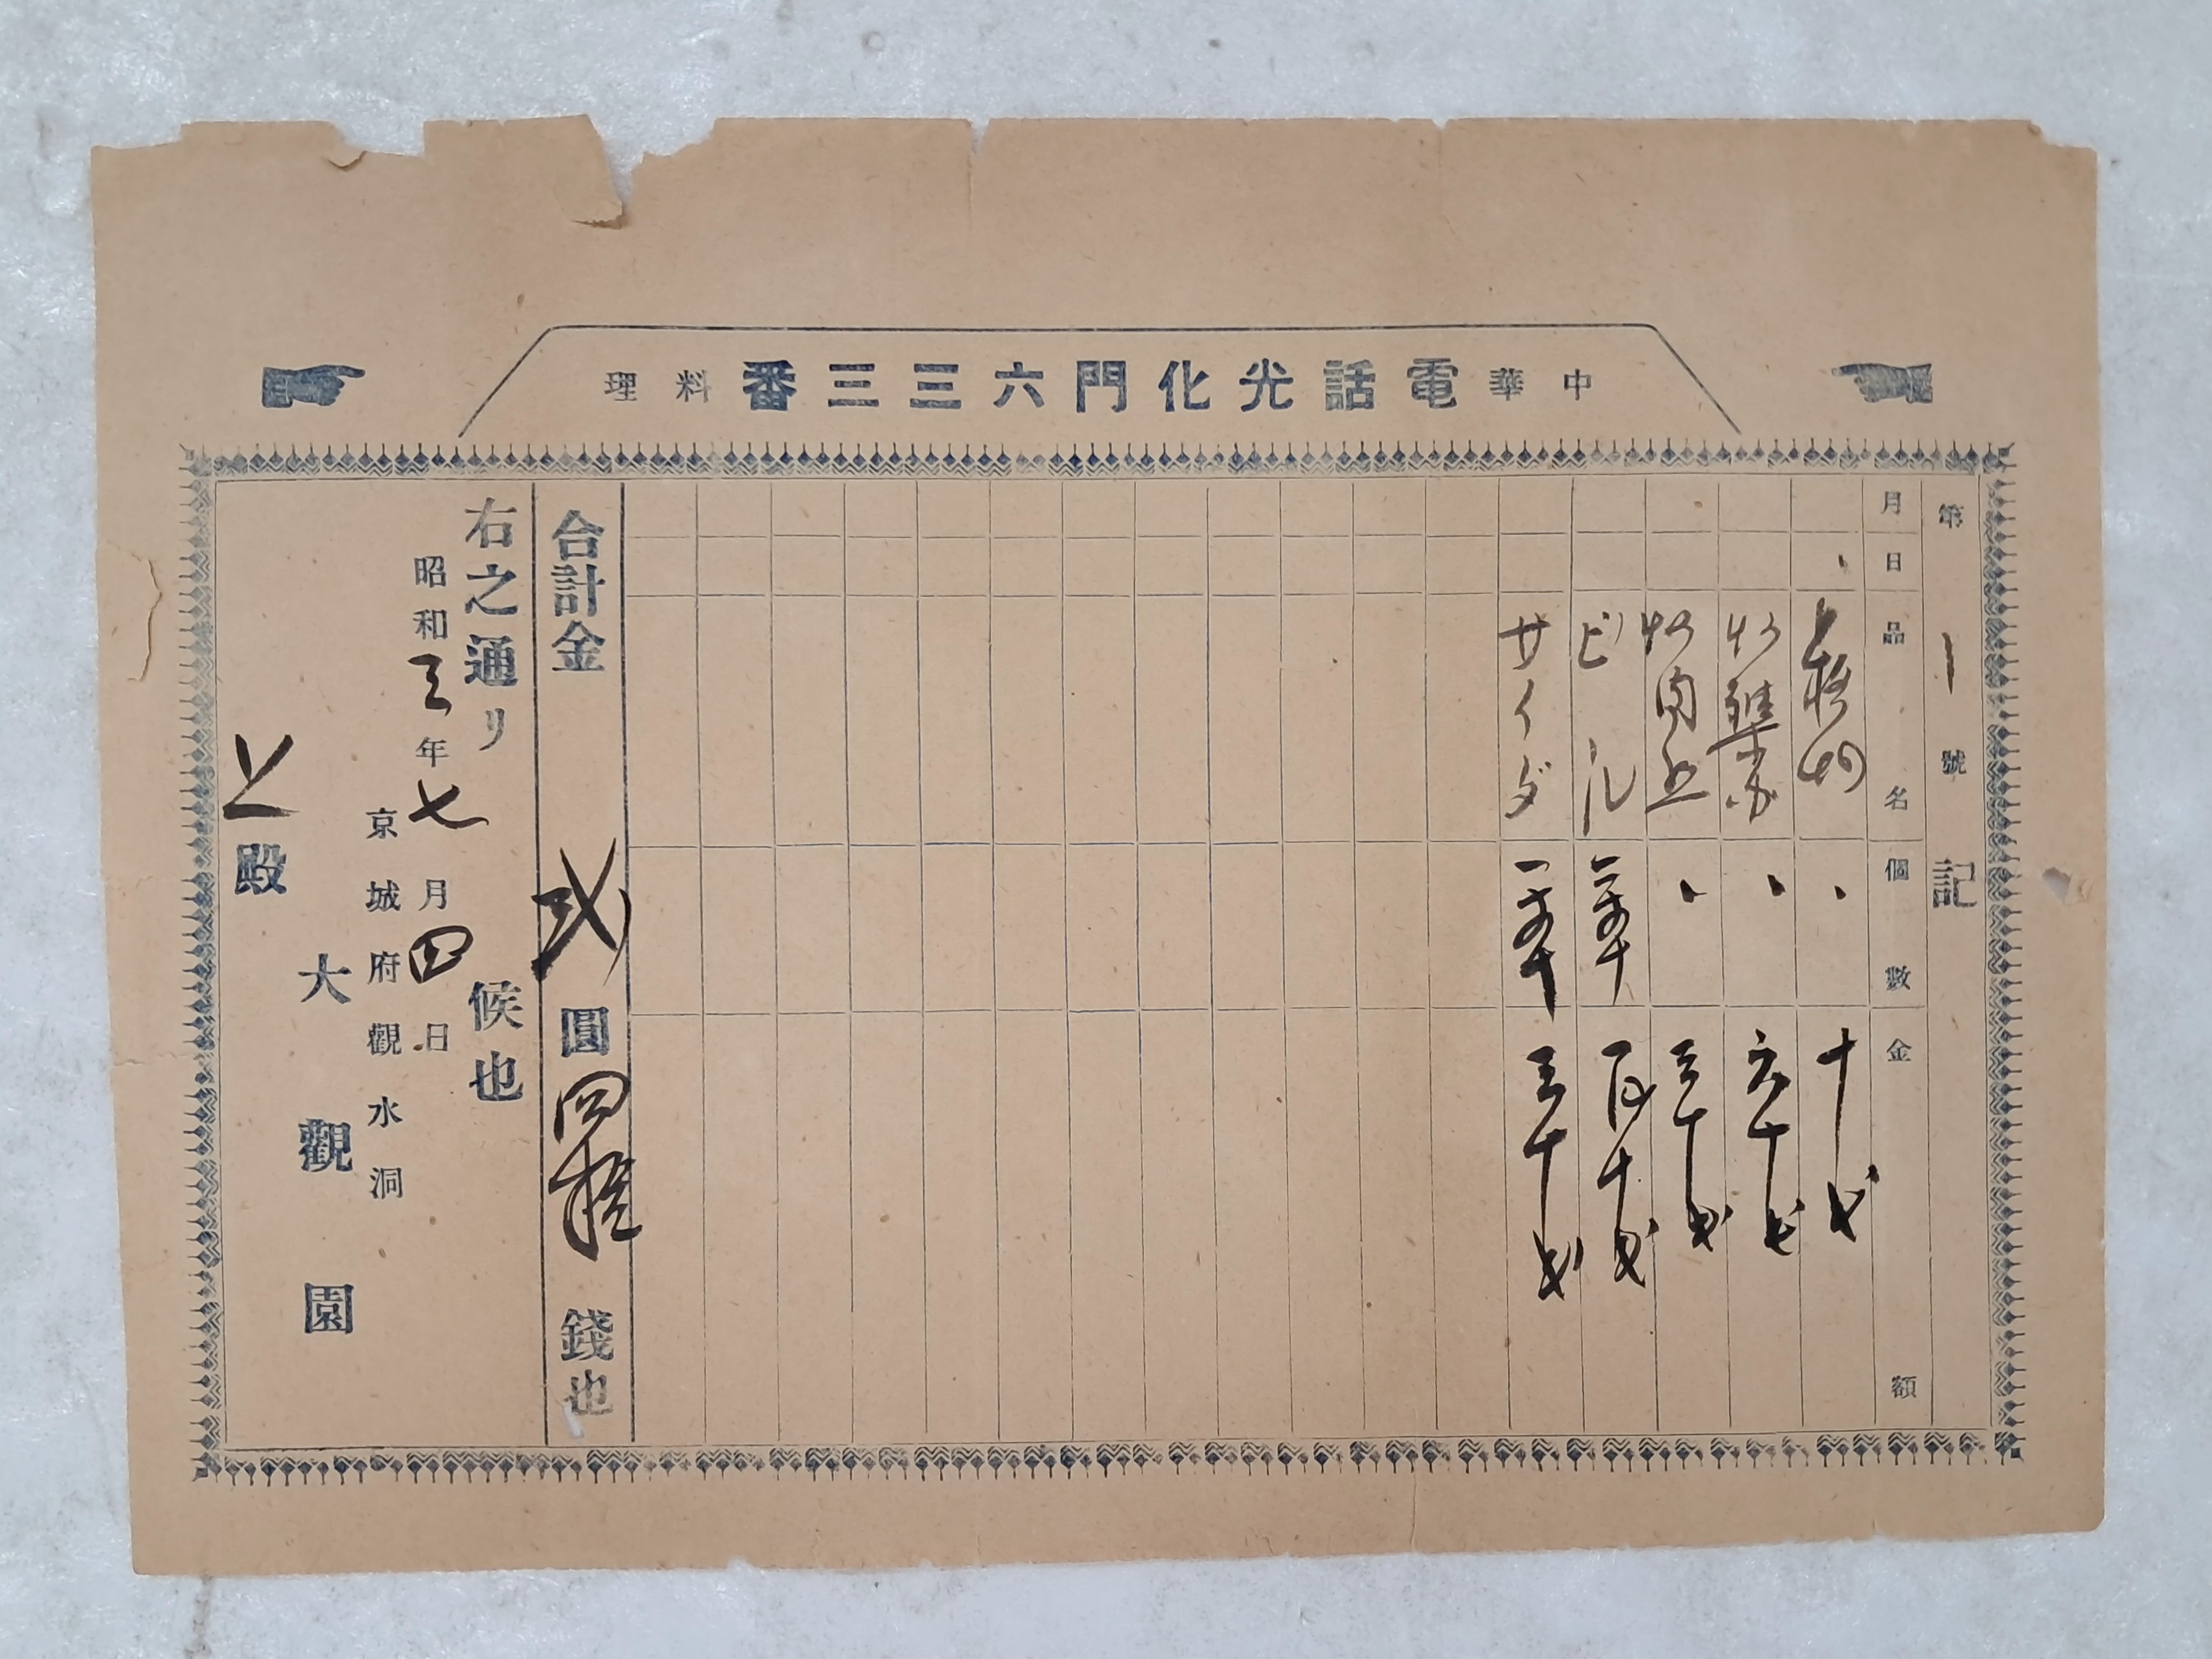 中華電話光化門六三三番料理
第一號 記
月日 品名 個數 金額
十戋
炒 六十戋
炒肉 三十戋
ビール 百十戋
サイダ 三十戋
合計金貳圓四拾錢也
右之通リ候也
昭和三年七月四日
京城府觀水洞
大觀園
上殿